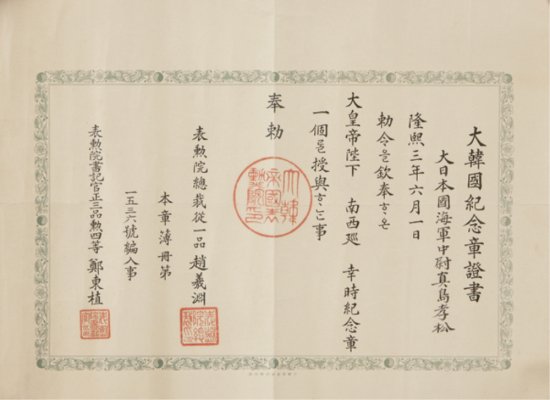 大韓國紀念章證書
大日本國海軍中尉真島孝松
隆熙三年六月一日
勅令을欽奉ᄒᆞ온
大皇帝陛下 南西廵 幸時紀念章
一個를授與ᄒᆞᆫ事
奉勅
表勲院總裁從一品趙羲淵
本章簿冊第
一五三六號編入事
表勲院書記官正三品勲四等鄭東植